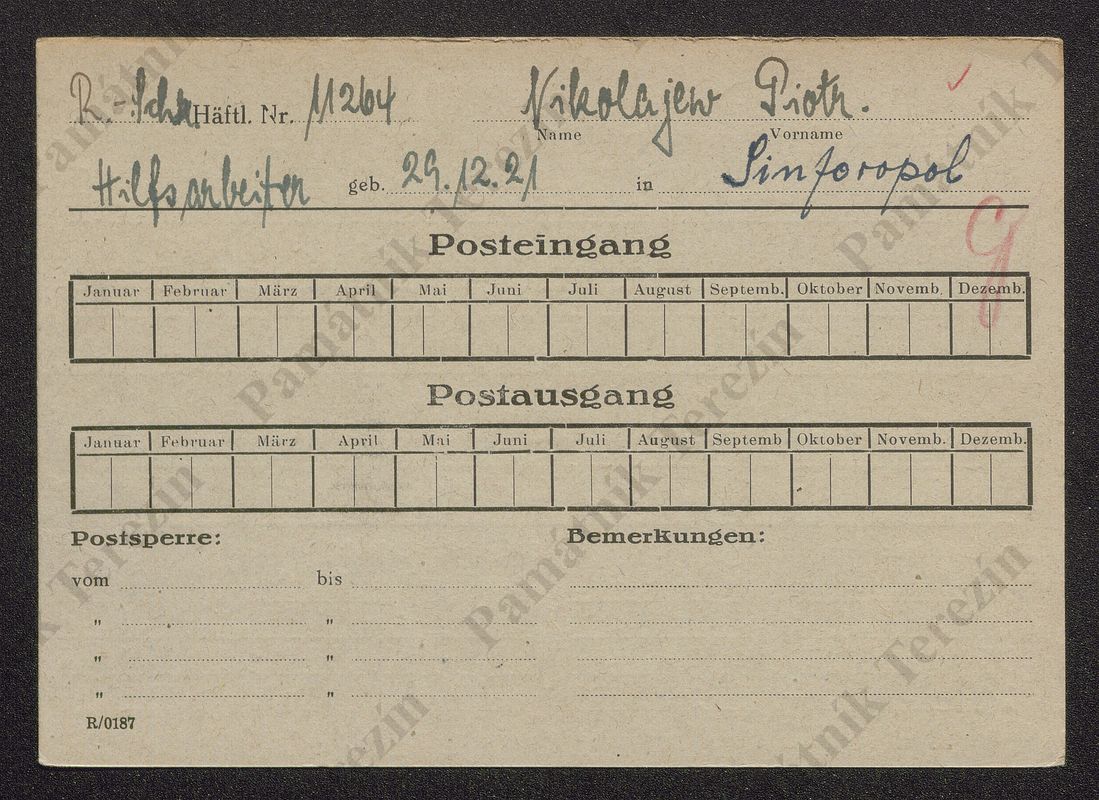 R.-Sch. Häftl. Nr. 11264 Nikolajew Piotr.
Name Vorname
Hilfsarbeiter geb. 29.12.21 in Sinferopol
Posteingang
Januar Februar März April Mai Juni Juli August Septemb. Oktober Novemb. Dezemb.
Postausgang
Januar Februar März April Mai Juni Juli August Septemb Oktober Novemb. Dezemb.
Postsperre: Bemerkungen:
vom bis
" "
" "
" "
R/0187
Památník Terezín